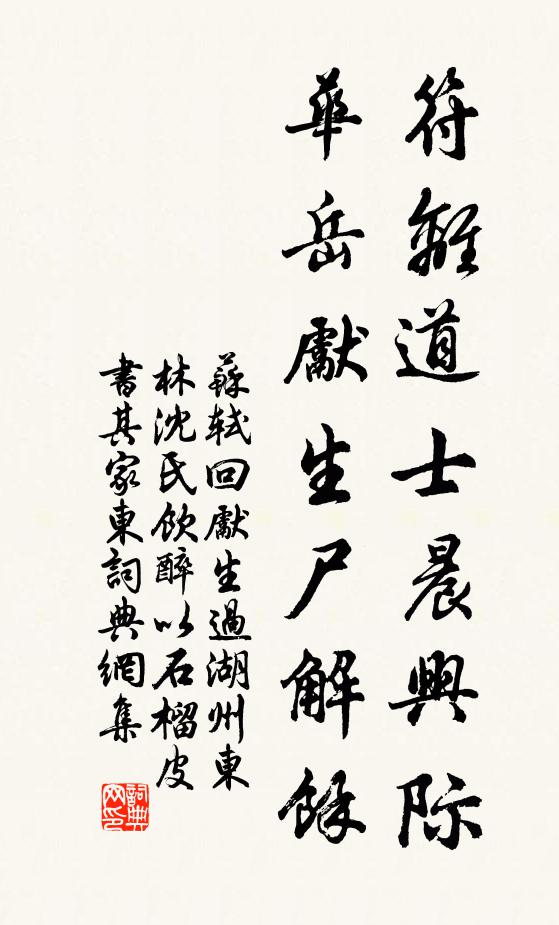 符離道士晨興际
華岳獻生尸解餘
蘇轼回獻生過湖州東
林沈氏飲醉以石榴皮
書其家東詞典網集
詞典网印